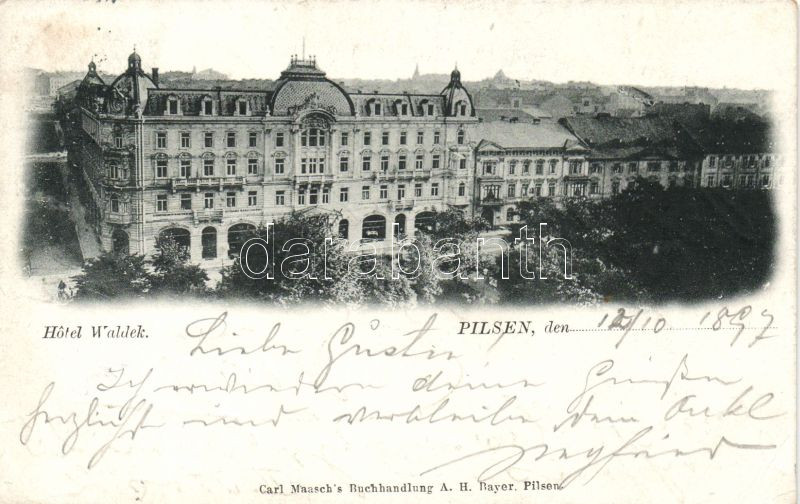 darabanth
Hôtel Waldek.
PILSEN, den 12/10 1897
Liebe Gustie
Ich erwiedere deine Grüsse
herzlichst und verbleibe dein Onkel
Siegfried
Carl Maasch's Buchhandlung A. H. Bayer, Pilsen.